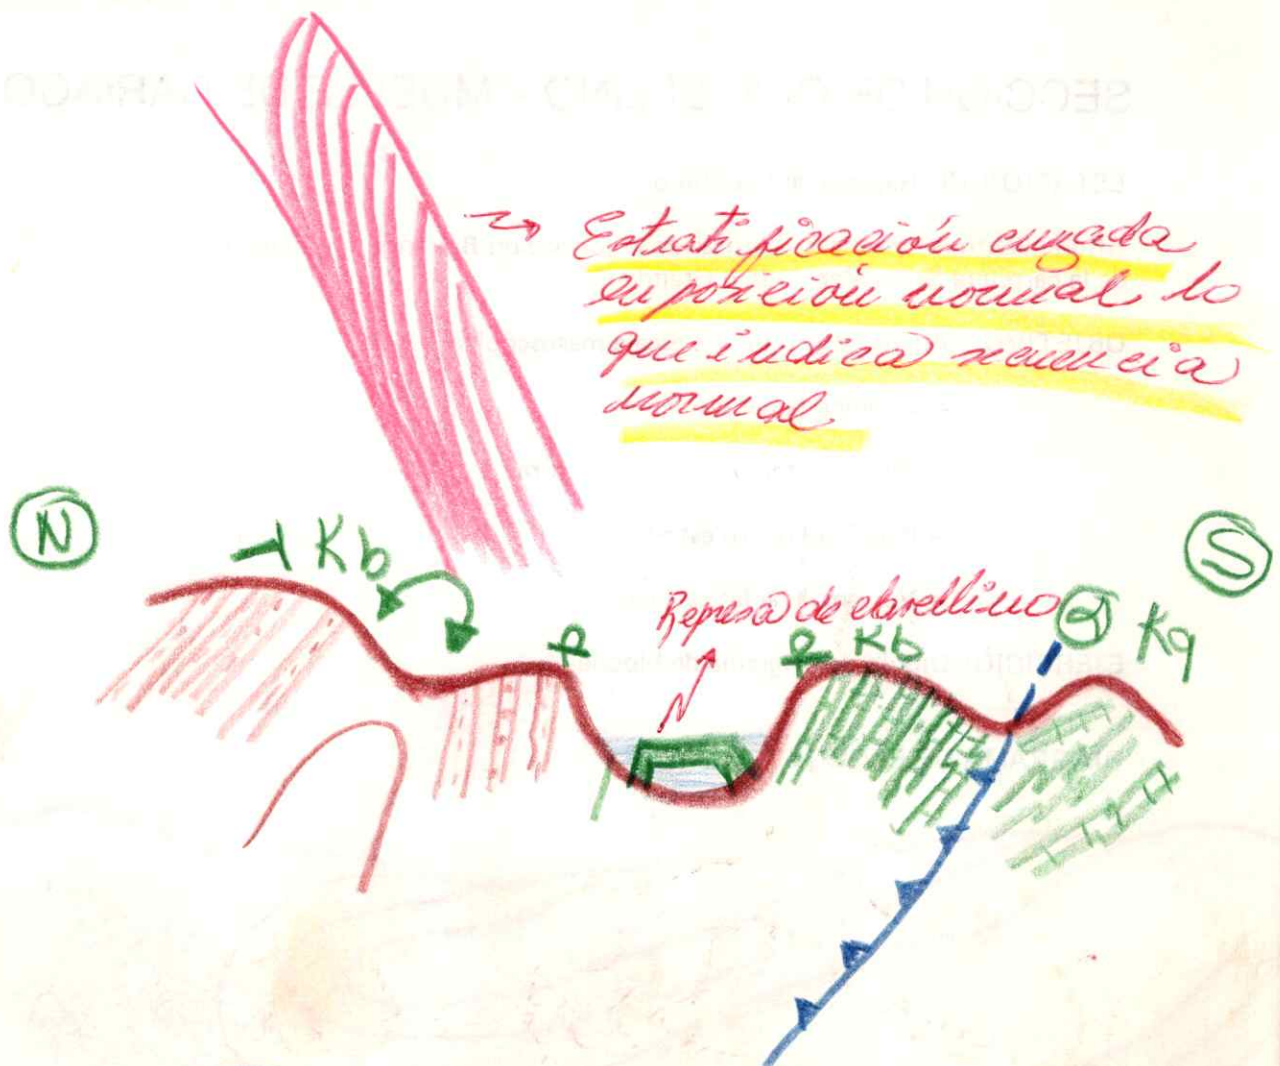 Estratificación cruzada
en posición normal lo
que indica secuencia
normal
N
Kb
S
Represa de clavellino
Kb
Kq